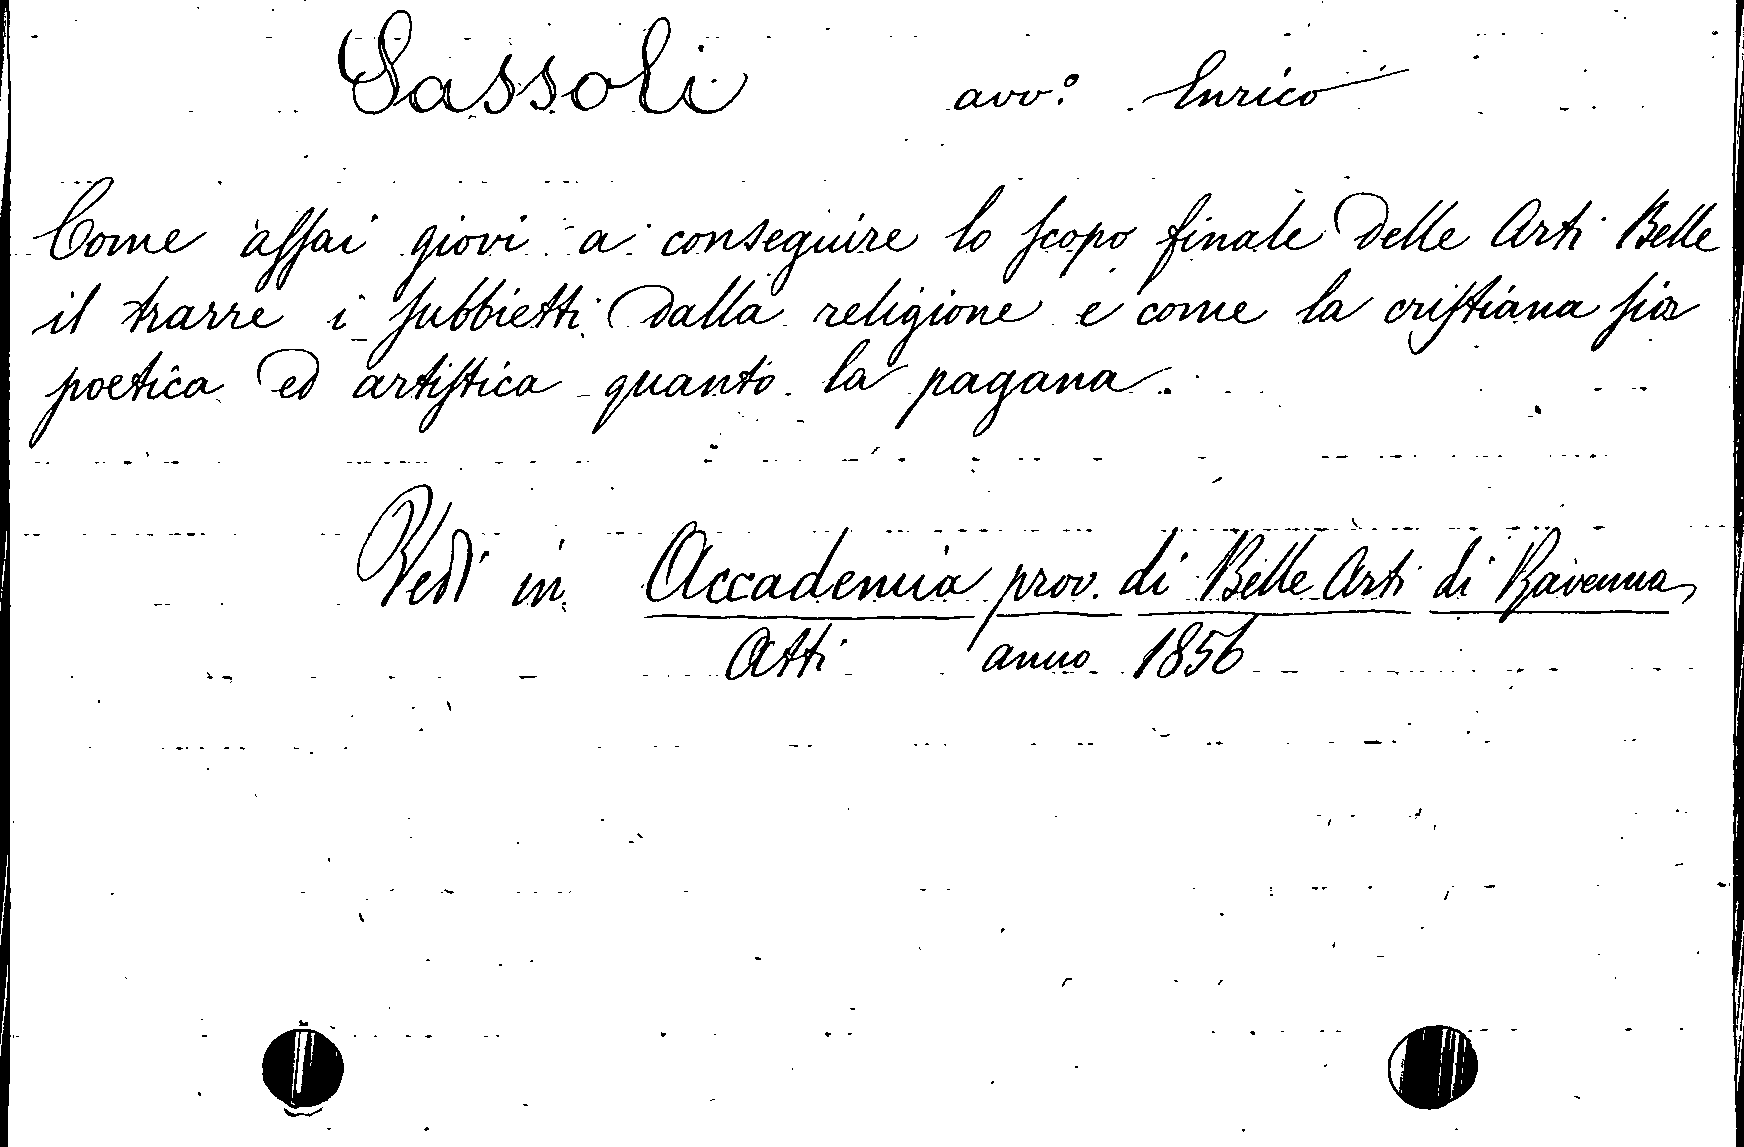 Sassoli avv.° Enrico
Come assai giovi a conseguire lo scopo finale delle Arti Belle
il trarre i subbietti dalla religione e come la cristiana sia
poetica ed artistica quanto la pagana.
Vedi in Accademia prov. di Belle Arti di Ravenna
Atti anno 1856